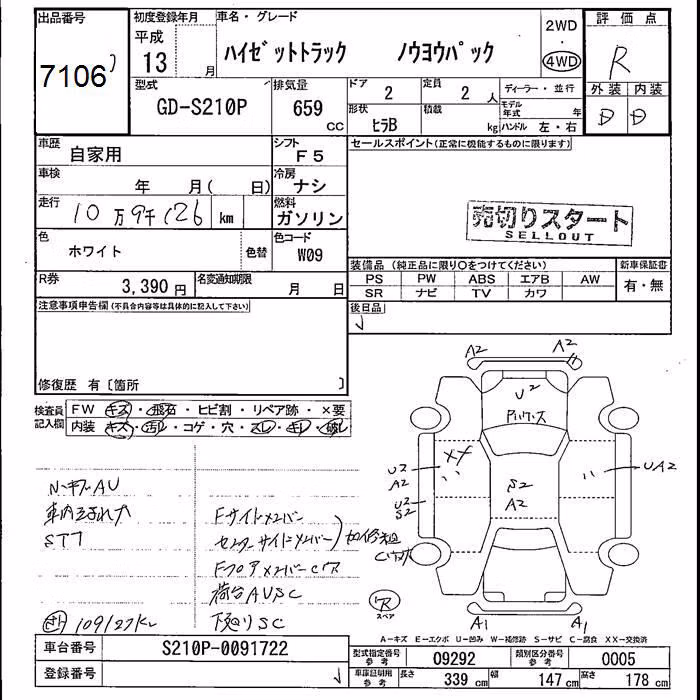 出品番号
7106
初度登録年月
平成
13 月
車名・グレード
ハイゼットトラック ノウヨウパック
2WD
・
4WD
評価点
R
外装 内装
D D
型式
GD-S210P
排気量
659
CC
ドア
2
定員
2 人
ディーラー・並行
モデル年式 年
形状
ヒラB
積載
kg
ハンドル 左・右
車歴
自家用
シフト
F5
セールスポイント(正常に機能するものに限ります)
車検
年 月( 日)
冷房
ナシ
走行
10万9千126 km
燃料
ガソリン
売切りスタート
SELLOUT
色
ホワイト
色替
色コード
W09
装備品(純正品に限り〇をつけてください)
新車保証書
PS PW ABS エアB AW
SR ナビ TV カワ
有・無
R券
3,390円
名変通知期限
月 日
後日品
注意事項申告欄(不具合内容等は具体的に記入して下さい)
修復歴 有〔箇所 〕
検査員記入欄
FW キズ・飛石・ヒビ割・リペア跡・×要
内装 キズ・汚レ・コゲ・穴・スレ・キレ・破レ
A2 A2
U2
XX
U2
A2
U2
S2
S2
A2
UA2
R
スペア
A1 A1
Fサイドメンバー
センターサイドメンバー
荷台AUSC
下廻りSC
109127KL
A-キズ E-エクボ U-凹み W-補修跡 S-サビ C-腐食 XX-交換済
車台番号
S210P-0091722
登録番号
型式指定番号
参考
09292
類別区分番号
参考
0005
車庫証明用
参考
長さ 339 cm
幅 147 cm
高さ 178 cm